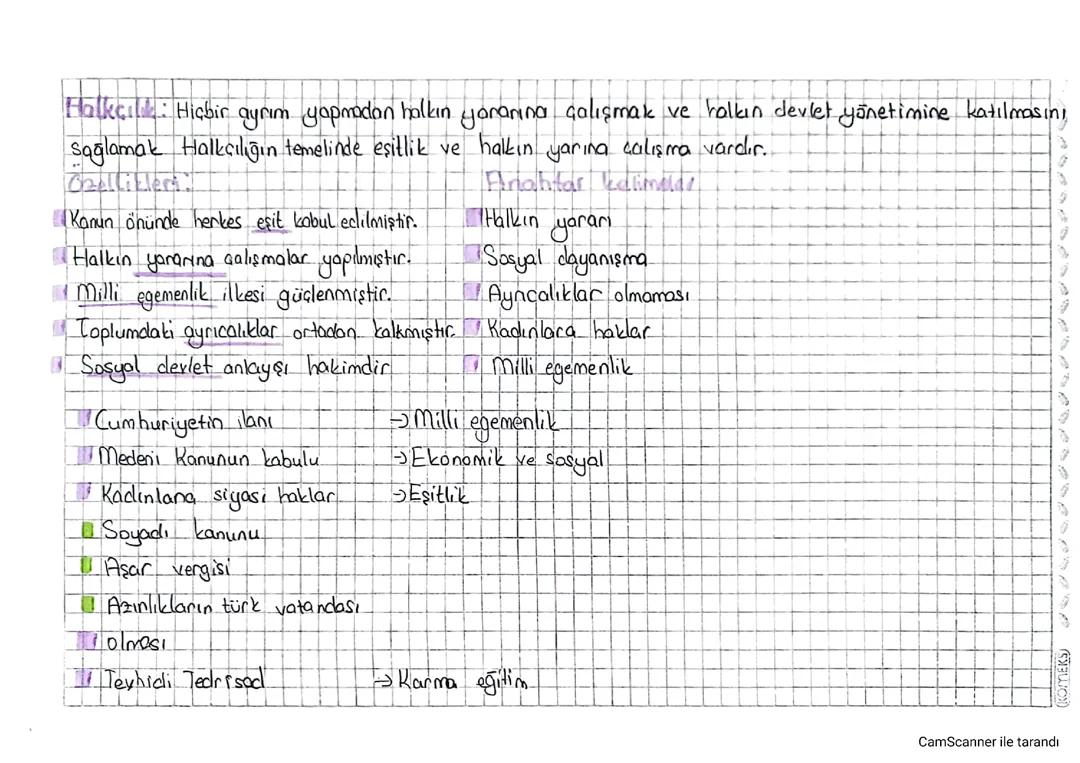 Halkçılık: Hiçbir ayrım yapmadan halkın yararına çalışmak ve halkın devlet yönetimine katılmasını
sağlamak Halkçılığın temelinde eşitlik ve halkın yarına çalışma vardır.
Özellikleri:
Anahtar kelimeler
Kanun önünde herkes eşit kabul edilmiştir.
Halkın yararı
Halkın yararına çalışmalar yapılmıştır.
Sosyal dayanışma
Milli egemenlik ilkesi güçlenmiştir.
Ayrıcalıklar olmaması
Toplumdaki ayrıcalıklar ortadan kalkmıştır.
Kadınlara haklar
Sosyal devlet anlayışı hakimdir
Milli egemenlik
Cumhuriyetin ilanı → Milli egemenlik
Medeni Kanunun kabulu → Ekonomik ve sosyal
Kadınlara siyasi haklar → Eşitlik
Soyadı kanunu
Aşar vergisi
Azınlıkların türk vatandaşı
olması
Tevhidi Tedrisad → Karma eğitim
KOMEKS
CamScanner ile tarandı